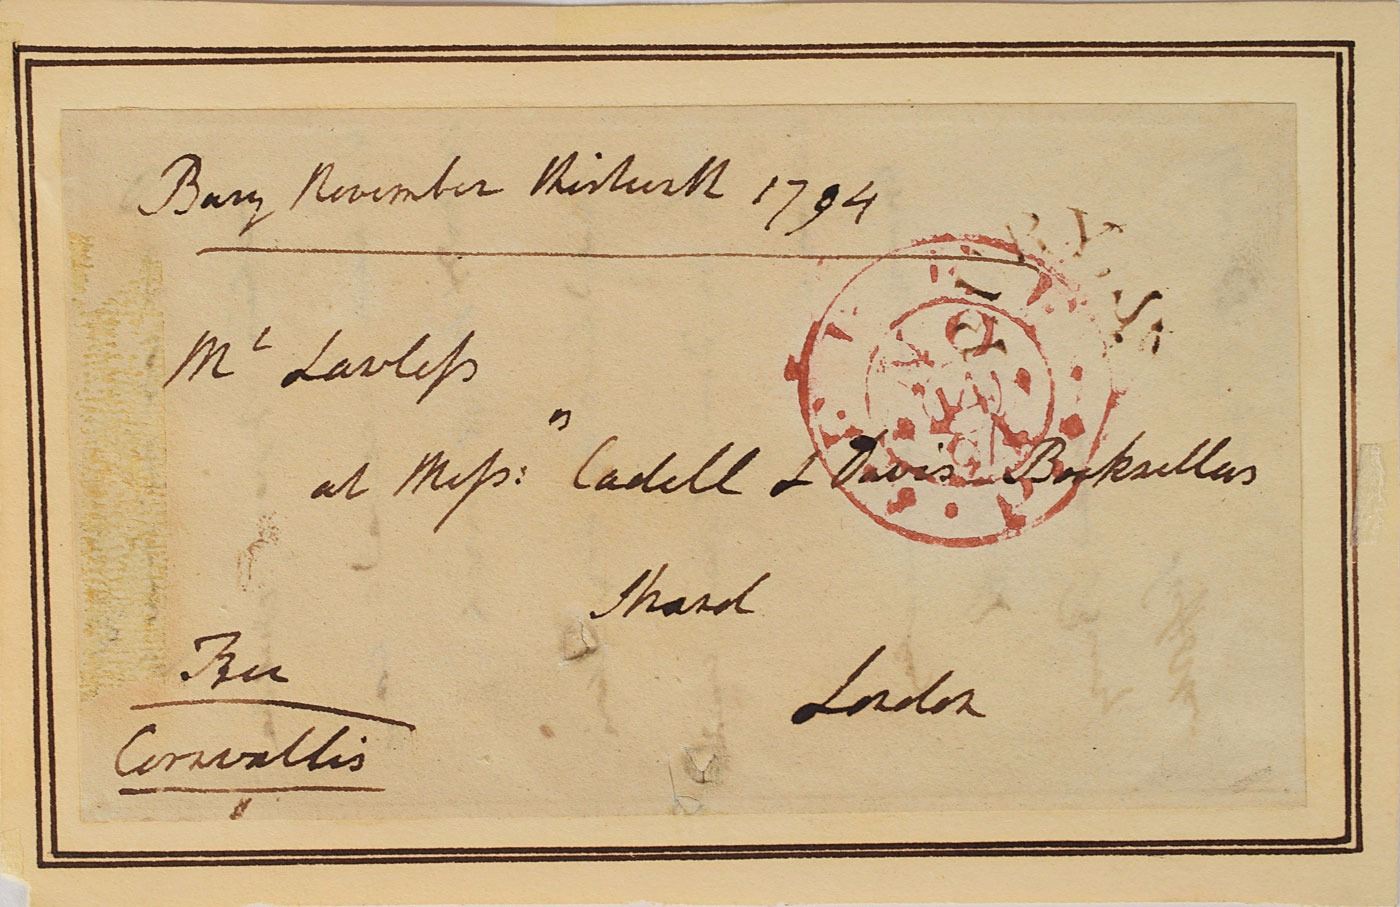 Bury November thirteenth 1794
Mr Lawless
at Messrs Cadell & Davis Booksellers
Strand
London
Free
Cornwallis